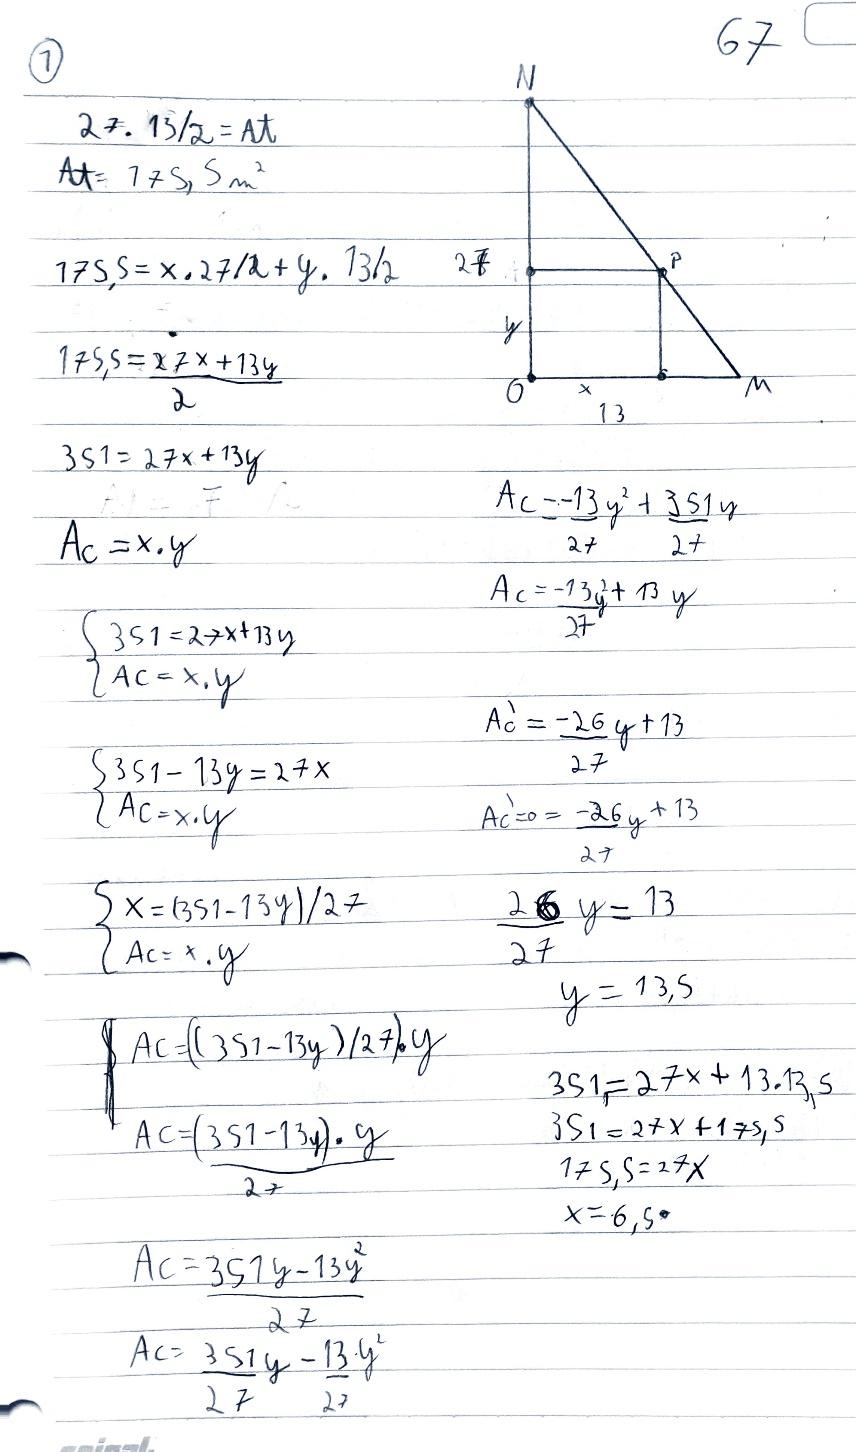 67
1
27. 13/2 = At
At = 175,5 m²
175,5 = x.27/2 + y. 13/2
175,5 = 27x + 13y
2
351 = 27x + 13y
Ac = x.y
351 = 27x + 13y
Ac = x.y
351 - 13y = 27x
Ac = x.y
x = (351 - 13y)/27
Ac = x.y
Ac = ((351 - 13y)/27).y
Ac = (351 - 13y).y
27
Ac = 351y - 13y²
27
Ac = 351y - 13y²
27 27
N
27
P
y
O
x
M
13
Ac = -13y² + 351y
27 27
Ac = -13y² + 13y
27
Ac' = -26y + 13
27
Ac' = 0 = -26y + 13
27
26 y = 13
27
y = 13,5
351 = 27x + 13.13,5
351 = 27x + 175,5
175,5 = 27x
x = 6,5